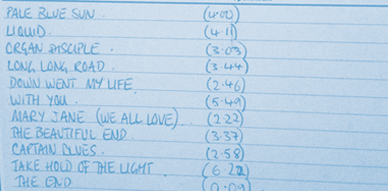 PALE BLUE SUN. (4.00)
LIQUID. (4.11)
ORGAN DISCIPLE. (3.03)
LONG, LONG, ROAD. (3.44)
DOWN WENT MY LIFE. (2.46)
WITH YOU. (5.49)
MARY JANE (WE ALL LOVE). (2.22)
THE BEAUTIFUL END. (3.37)
CAPTAIN CLUES. (2.58)
TAKE HOLD OF THE LIGHT. (6.22)
THE END (0.09)